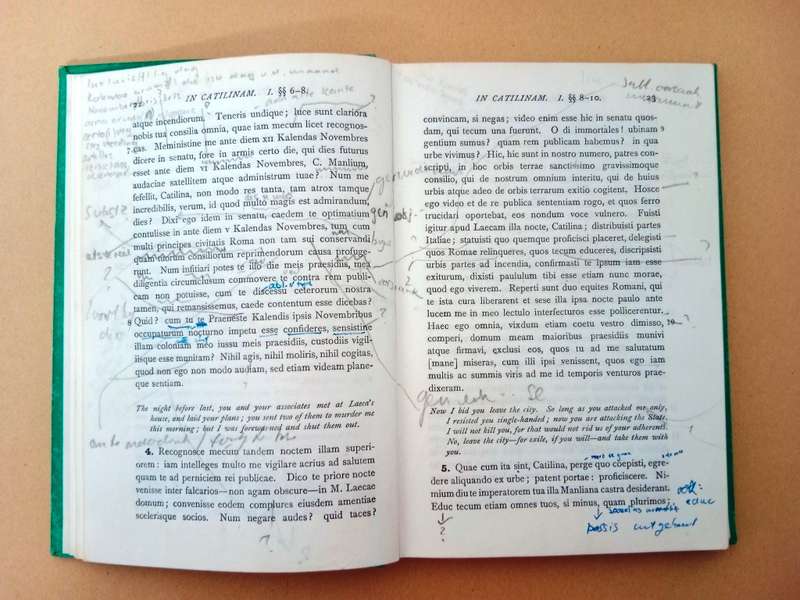 IN CATILINAM. I. §§ 6–8.
atque incendiorum? Teneris undique; luce sunt clariora
nobis tua consilia omnia, quae iam mecum licet recognos-
7 cas. Meministine me ante diem XII Kalendas Novembres
dicere in senatu, fore in armis certo die, qui dies futurus
esset ante diem VI Kalendas Novembres, C. Manlium,
audaciae satellitem atque administrum tuae? Num me
fefellit, Catilina, non modo res tanta, tam atrox tamque
incredibilis, verum, id quod multo magis est admirandum,
dies? Dixi ego idem in senatu, caedem te optimatium
contulisse in ante diem V Kalendas Novembres, tum cum
multi principes civitatis Roma non tam sui conservandi
quam tuorum consiliorum reprimendorum causa profuge-
runt. Num infitiari potes te illo die meis praesidiis, mea
diligentia circumclusum commovere te contra rem publi-
cam non potuisse, cum te discessu ceterorum nostra
tamen, qui remansissemus, caede contentum esse dicebas?
8 Quid? cum tu te Praeneste Kalendis ipsis Novembribus
occupaturum nocturno impetu esse confideres, sensistine
illam coloniam meo iussu meis praesidiis, custodiis vigil-
iisque esse munitam? Nihil agis, nihil moliris, nihil cogitas,
quod non ego non modo audiam, sed etiam videam plane-
que sentiam.
The night before last, you and your associates met at Laeca's
house, and laid your plans; you sent two of them to murder me
this morning; but I was forewarned and shut them out.
4. Recognosce mecum tandem noctem illam superi-
orem: iam intelleges multo me vigilare acrius ad salutem
quam te ad perniciem rei publicae. Dico te priore nocte
venisse inter falcarios—non agam obscure—in M. Laecae
domum; convenisse eodem complures eiusdem amentiae
scelerisque socios. Num negare audes? quid taces?
IN CATILINAM. I. §§ 8–10. 23
convincam, si negas; video enim esse hic in senatu quos-
dam, qui tecum una fuerunt. O di immortales! ubinam 9
gentium sumus? quam rem publicam habemus? in qua
urbe vivimus? Hic, hic sunt in nostro numero, patres con-
scripti, in hoc orbis terrae sanctissimo gravissimoque
consilio, qui de nostrum omnium interitu, qui de huius
urbis atque adeo de orbis terrarum exitio cogitent. Hosce
ego video et de re publica sententiam rogo, et quos ferro
trucidari oportebat, eos nondum voce vulnero. Fuisti
igitur apud Laecam illa nocte, Catilina; distribuisti partes
Italiae; statuisti quo quemque proficisci placeret, delegisti
quos Romae relinqueres, quos tecum educeres, discripsisti
urbis partes ad incendia, confirmasti te ipsum iam esse
exiturum, dixisti paulum tibi esse etiam nunc morae,
quod ego viverem. Reperti sunt duo equites Romani, qui
te ista cura liberarent et sese illa ipsa nocte paulo ante
lucem me in meo lectulo interfecturos esse pollicerentur.
Haec ego omnia, vixdum etiam coetu vestro dimisso, 10
comperi, domum meam maioribus praesidiis munivi
atque firmavi, exclusi eos, quos tu ad me salutatum
[mane] miseras, cum illi ipsi venissent, quos ego iam
multis ac summis viris ad me id temporis venturos prae-
dixeram.
Now I bid you leave the city. So long as you attacked me only,
I resisted you single-handed; now you are attacking the State.
I will not kill you, for that would not rid us of your adherents.
No, leave the city—for exile, if you will—and take them with
you.
5. Quae cum ita sint, Catilina, perge quo coepisti, egre-
dere aliquando ex urbe; patent portae: proficiscere. Ni-
mium diu te imperatorem tua illa Manliana castra desiderant.
Educ tecum etiam omnes tuos, si minus, quam plurimos;
educ
possis
?